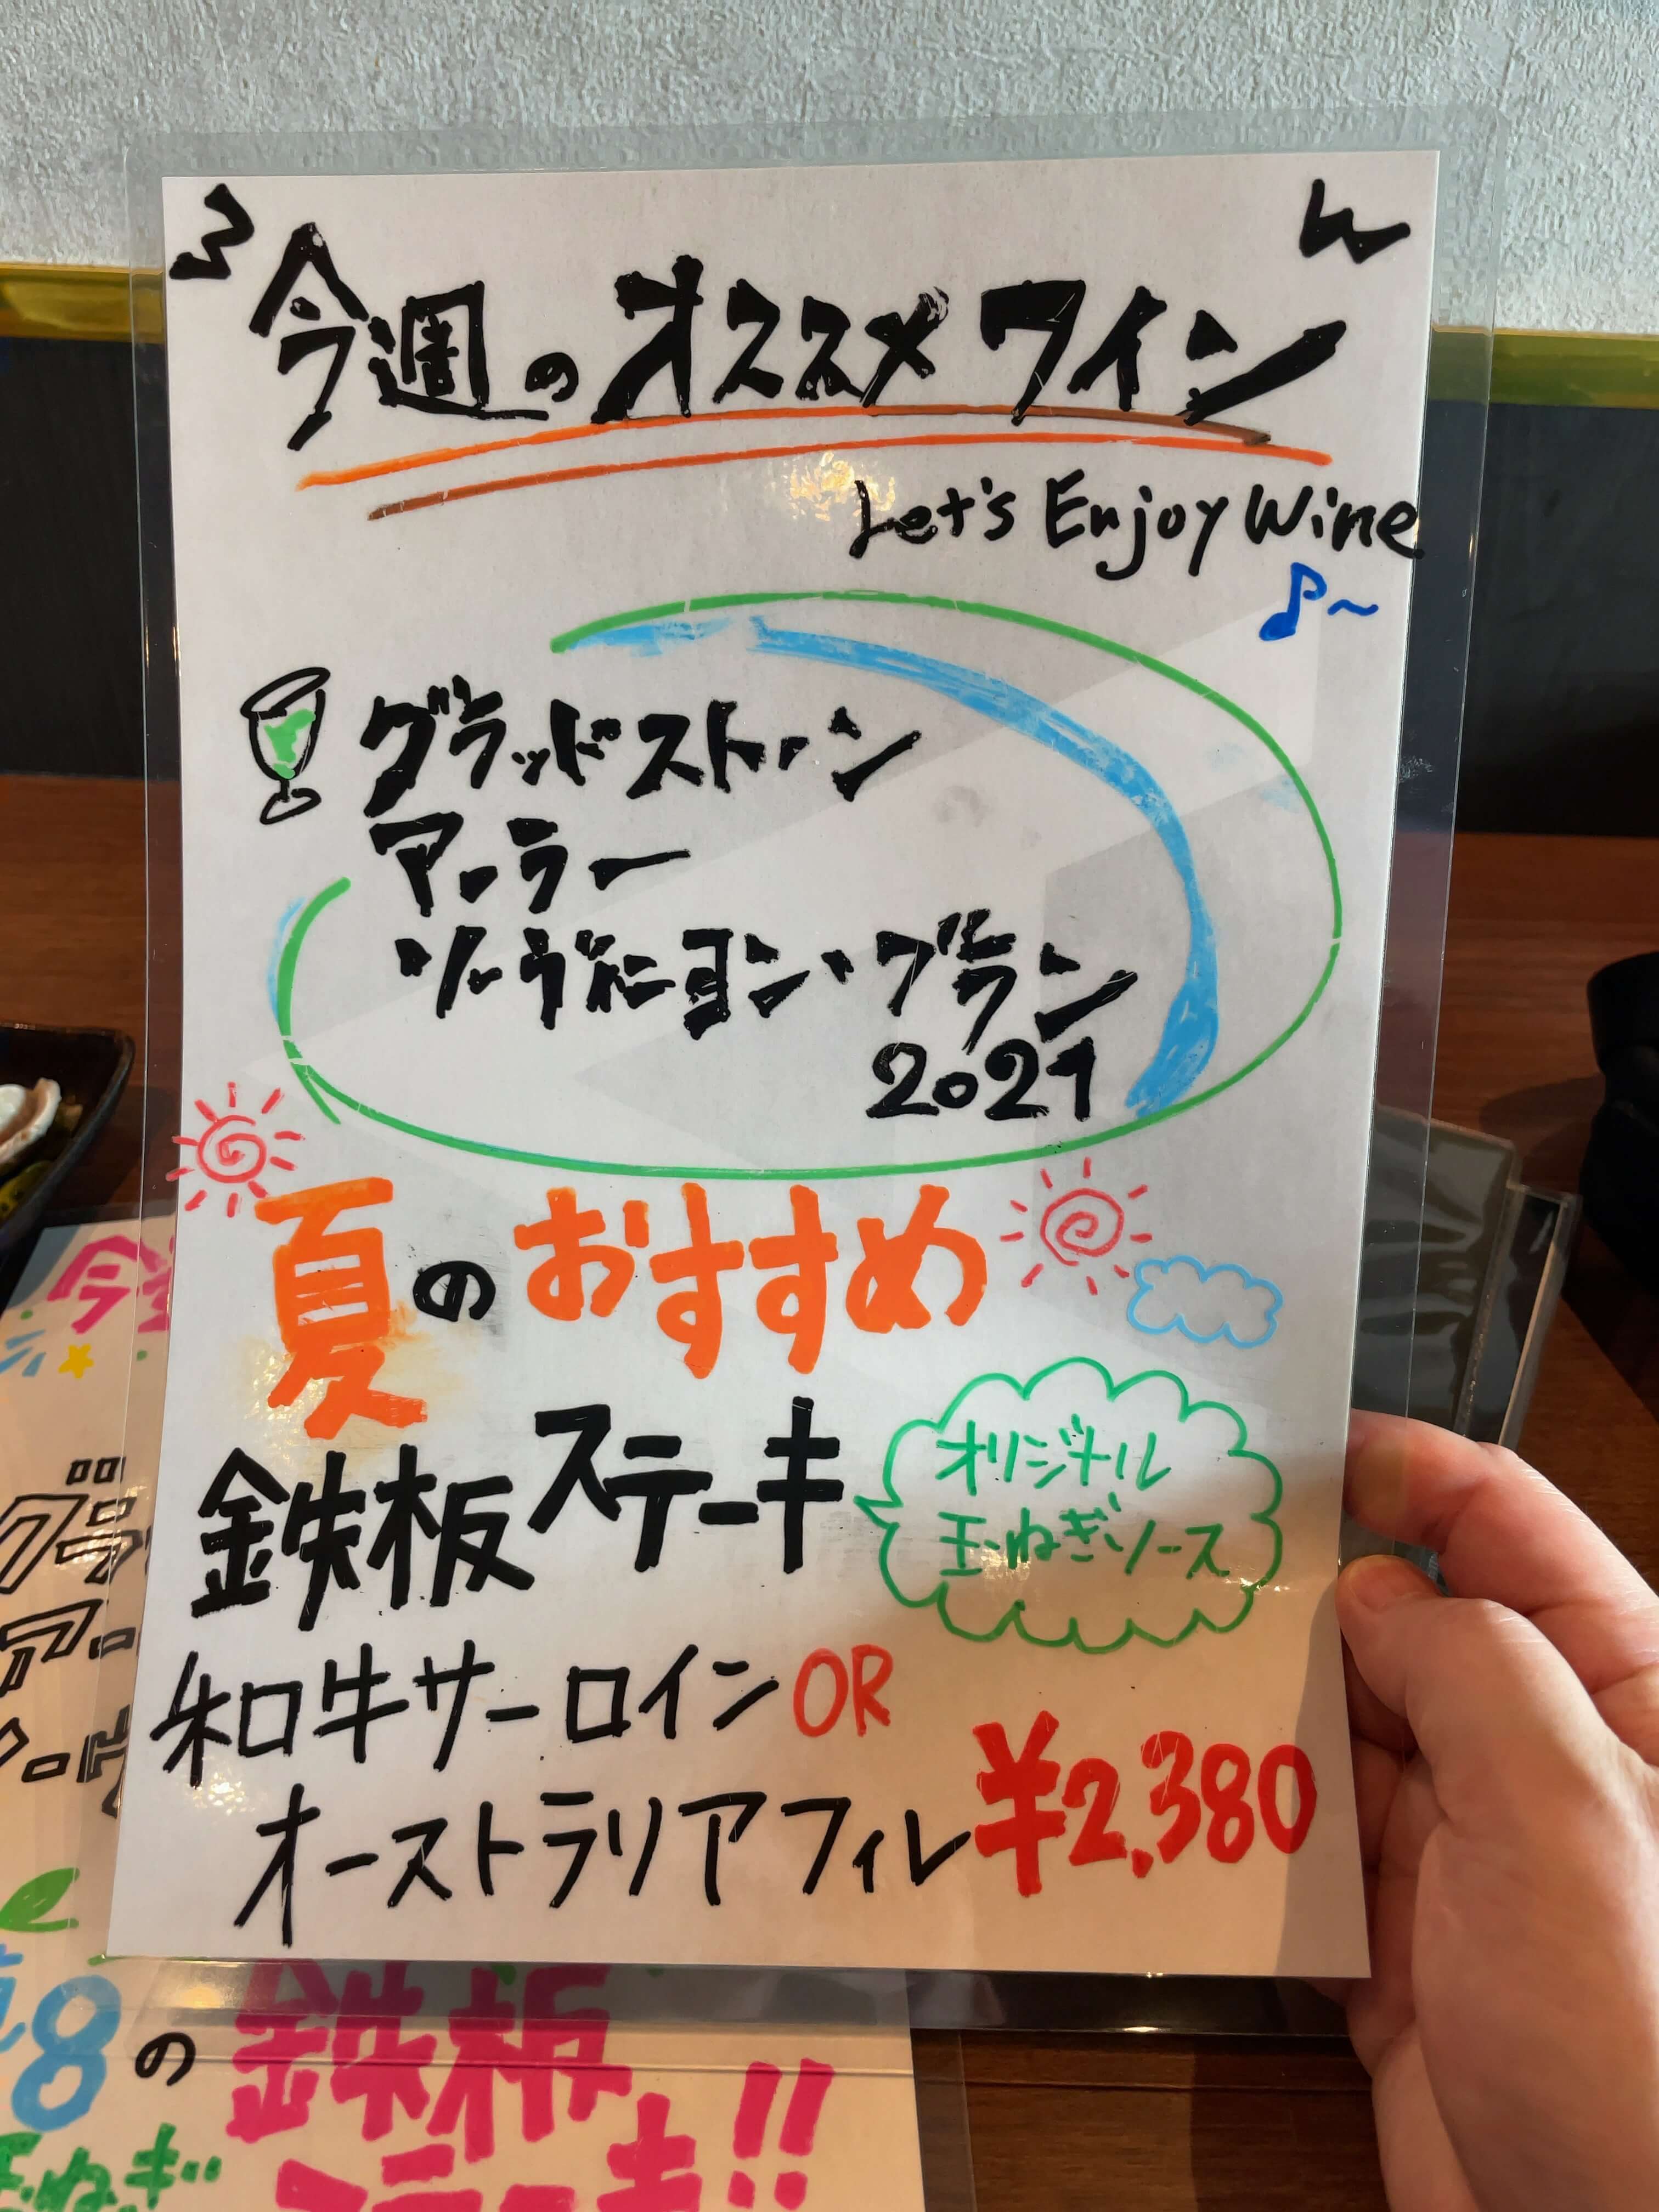 今週のオススメワイン
Let's Enjoy Wine
グラッドストーン
アーラー
ソーヴィニヨン・ブラン
2021
夏のおすすめ
鉄板ステーキ
オリジナル
玉ねぎソース
和牛サーロイン OR
オーストラリアフィレ ¥2,380
8の鉄板
玉ねぎ
ステーキ!!